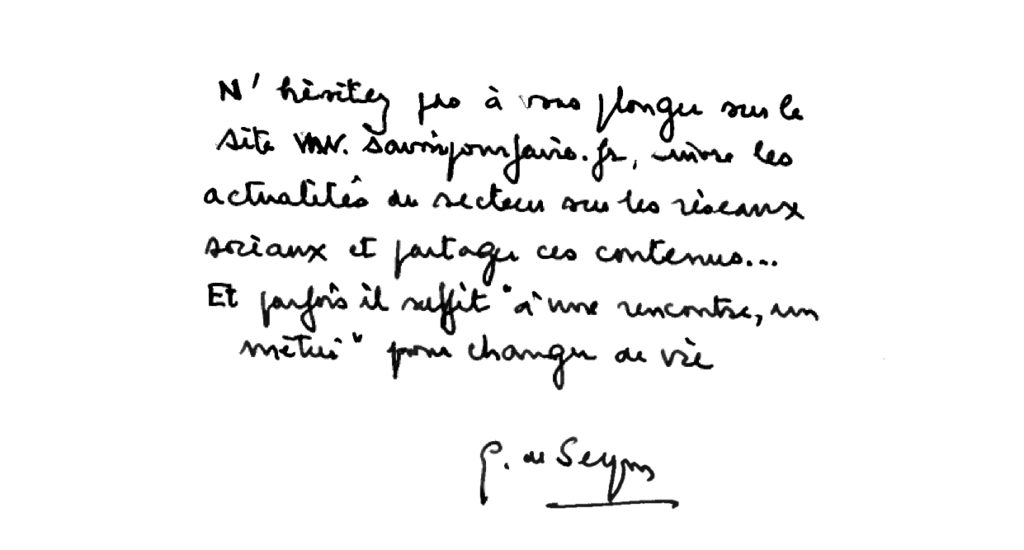 N'hésitez pas à vous plonger sur le
site www.savoirpourfaire.fr, suivre les
actualités du secteur sur les réseaux
sociaux et partager ces contenus...
Et parfois il suffit "d'une rencontre, un
métier" pour changer de vie
G. de Seyns